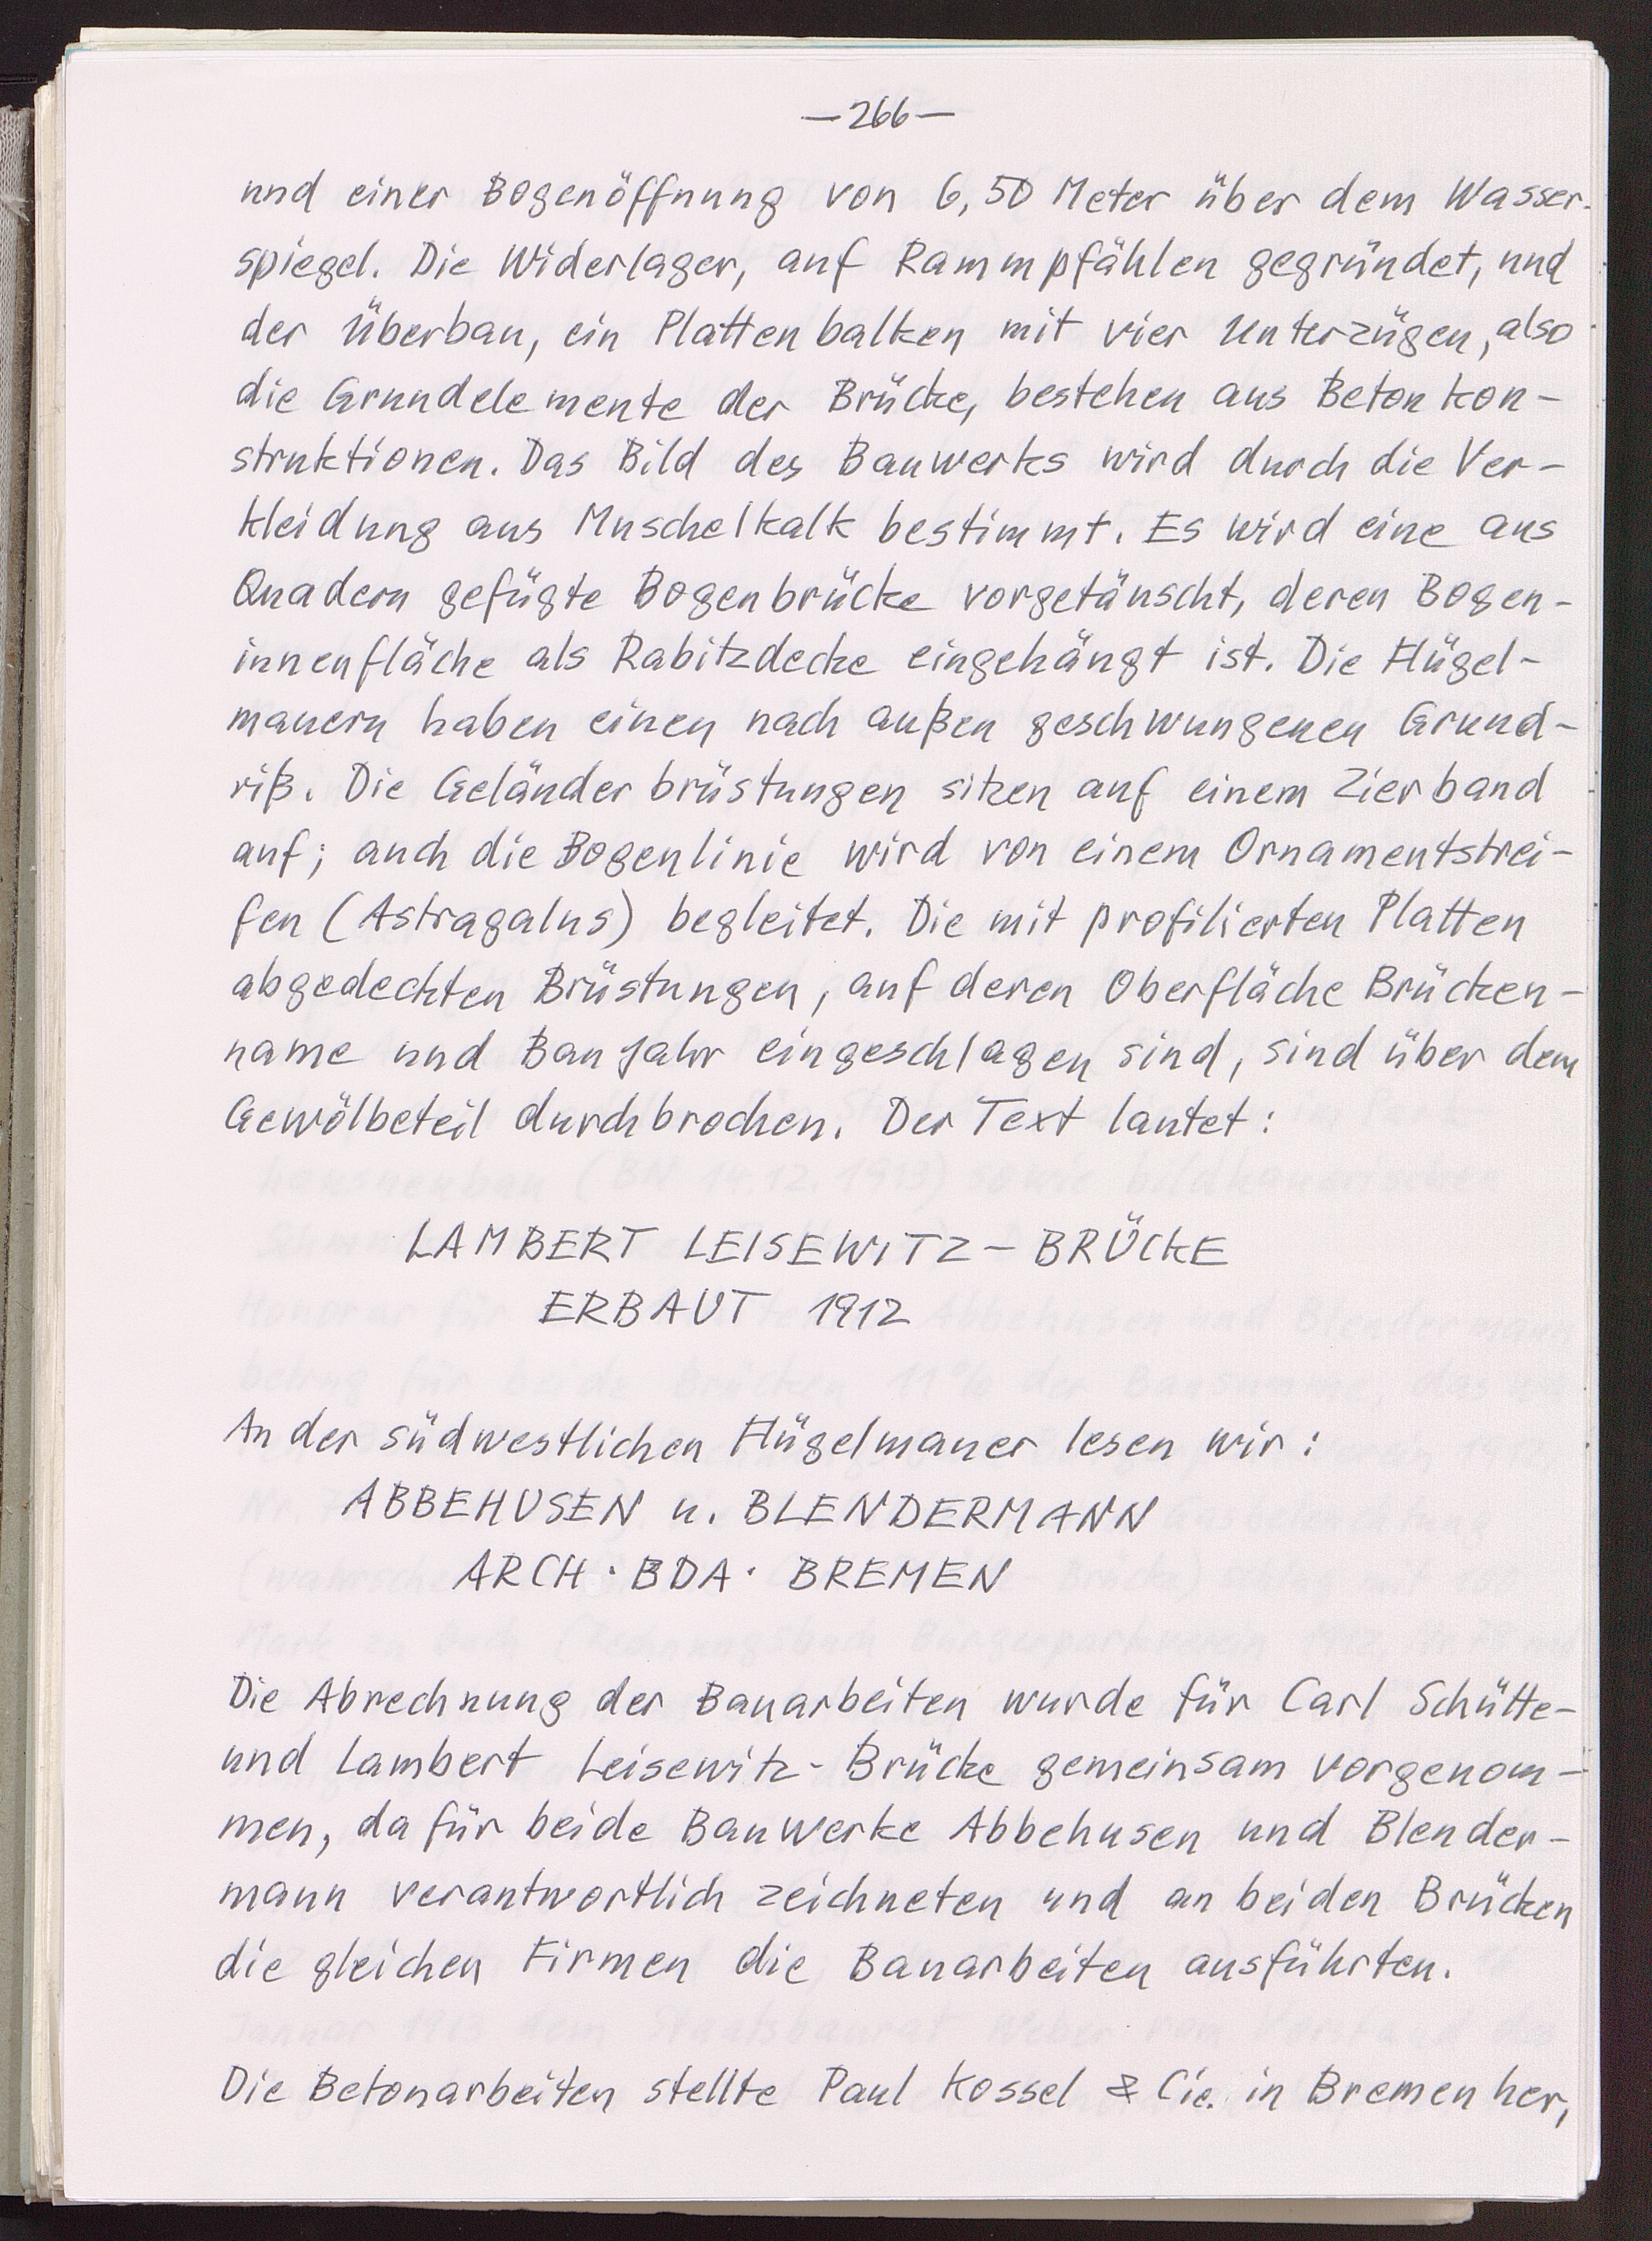 —266—
und einer Bogenöffnung von 6,50 Meter über dem Wasser-
spiegel. Die Widerlager, auf Rammpfählen gegründet, und
der Überbau, ein Plattenbalken mit vier Unterzügen, also
die Grundelemente der Brücke, bestehen aus Betonkon-
struktionen. Das Bild des Bauwerks wird durch die Ver-
kleidung aus Muschelkalk bestimmt. Es wird eine aus
Quadern gefügte Bogenbrücke vorgetäuscht, deren Bogen-
innenfläche als Rabitzdecke eingehängt ist. Die Flügel-
mauern haben einen nach außen geschwungenen Grund-
riß. Die Geländerbrüstungen sitzen auf einem Zierband
auf; auch die Bogenlinie wird von einem Ornamentstrei-
fen (Astragalus) begleitet. Die mit profilierten Platten
abgedeckten Brüstungen, auf deren Oberfläche Brücken-
name und Baujahr eingeschlagen sind, sind über dem
Gewölbeteil durchbrochen. Der Text lautet:
LAMBERT LEISEWITZ-BRÜCKE
ERBAUT 1912
An der südwestlichen Flügelmauer lesen wir:
ABBEHUSEN u. BLENDERMANN
ARCH · BDA · BREMEN
Die Abrechnung der Bauarbeiten wurde für Carl Schütte-
und Lambert Leisewitz-Brücke gemeinsam vorgenom-
men, da für beide Bauwerke Abbehusen und Blender-
mann verantwortlich zeichneten und an beiden Brücken
die gleichen Firmen die Bauarbeiten ausführten.
Die Betonarbeiten stellte Paul Kossel & Cie. in Bremen her,